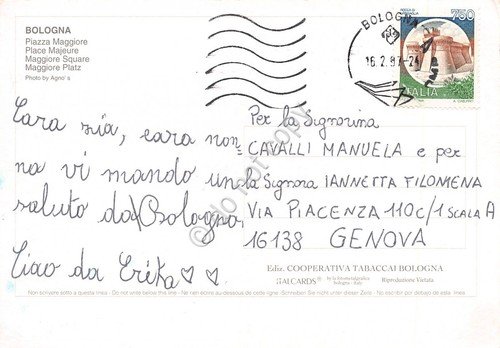 BOLOGNA
Piazza Maggiore
Place Majeure
Maggiore Square
Maggiore Platz
Photo by Agno's
BOLOGNA
750
ITALIA
Cara zia, cara non-
na vi mando un
saluto da Bologna,
Ciao da Erika
Per la Signorina
CAVALLI MANUELA e per
la Signora IANNETTA FILOMENA
VIA PIACENZA 110c/1 SCALA A
16138 GENOVA
do not copy
Ediz. COOPERATIVA TABACCAI BOLOGNA
ITALCARDS®
by la fotometalgrafica
Bologna - Italy
Riproduzione Vietata
Non scrivere sotto a questa linea - Do not write below this line - Ne rien écrire au-dessous de cette ligne - Schreiben Sie nicht unter dieser Zeile - No escribir por debajo de esta linea